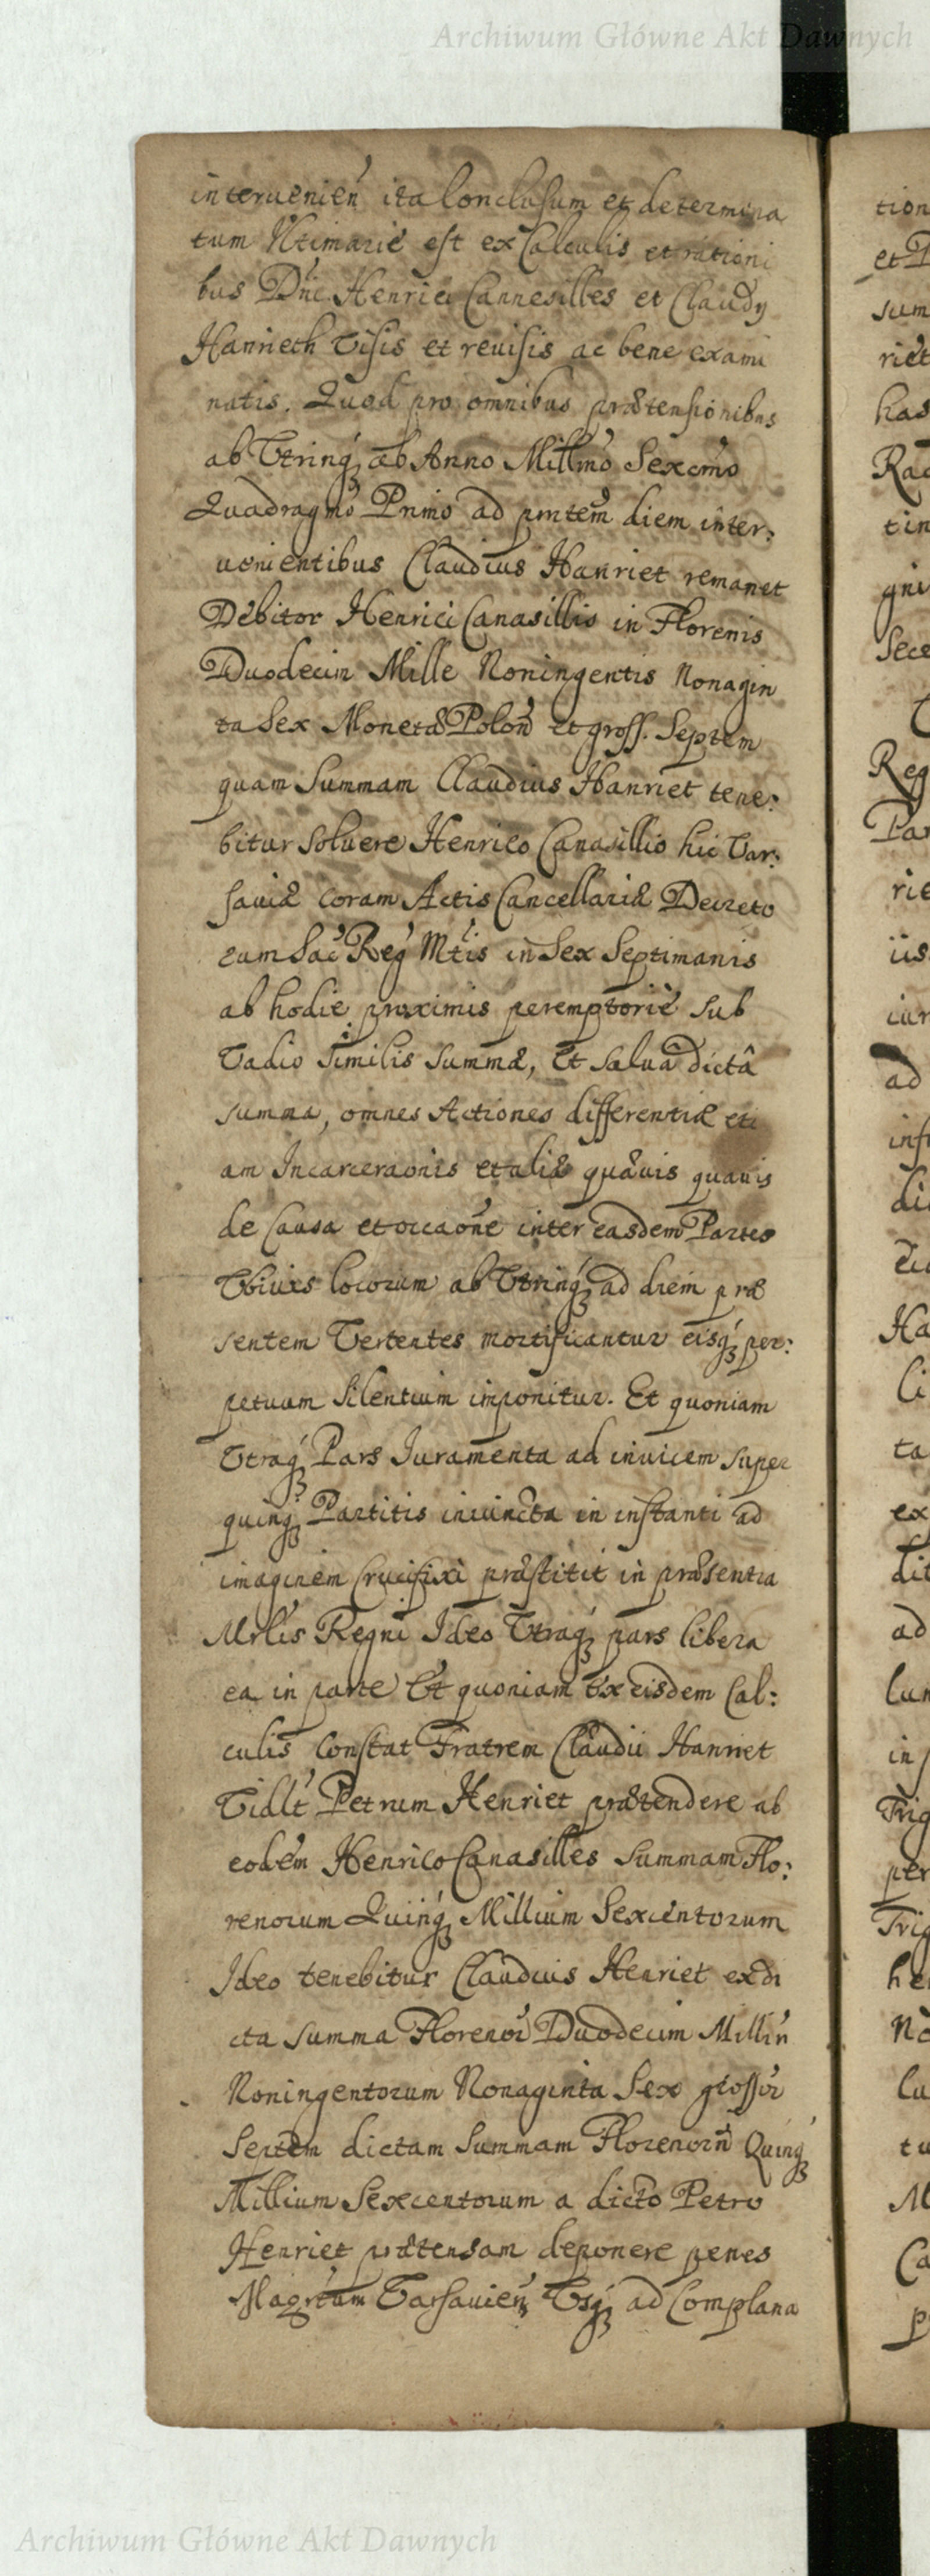 Archiwum Główne Akt Dawnych
interuenień ita Conclusum et determina
tum Vltimariè est ex Calculis et rationi
bus Dni Henrici Cannesilles et Claudy
Hanrieth Visis et reuisis ac bene exami
natis. Quod pro omnibus prætensionibus
ab Vtrinq; ab Anno Millmo Sexcmo
Quadragmo Primo ad pntem diem inter:
uenientibus Claudius Hanriet remanet
Debitor Henrici Canasillis in Florenis
Duodecim Mille Noningentis Nonagin
ta Sex Monetæ Polon et gross. Septem
quam Summam Claudius Hanriet tene:
bitur Soluere Henrico Canasillio hic Var:
sauiæ coram Actis Cancellariæ Decreto
rum Sac Reg Mtis in Sex Septimanis
ab hodie proximis peremptoriè sub
Vadio similis summæ, Et saluâ dictâ
summa, omnes Actiones differentiæ eti
am Incarceraonis et aliæ quæuis quauis
de Causa et occaone inter easdem Partes
Vbiuis locorum ab Vtrinq; ad diem præ
sentem Vertentes mortificantur eisq; per:
petuum Silentium imponitur. Et quoniam
Vtraq; Pars Iuramenta ad inuicem super
quinq; Partitis iniuncta in instanti ad
imaginem Crucifixi præstitit in præsentia
Mrlis Regni Ideo Vtraq; pars libera
ea in parte Et quoniam Ex eisdem Cal:
culis Constat Fratrem Claudii Hanriet
Vidlt Petrum Henriet prætendere ab
eodem Henrico Canasilles Summam Flo:
renorum Quinq; Millium Sexcentorum
Ideo tenebitur Claudius Henriet ex di
cta summa Florenor Duodecim Millin
Noningentorum Nonaginta Sex grossor
Septem dictam Summam Florenorn Quinq;
Millium Sexcentorum a dicto Petro
Henriet prætensam deponere penes
Magrtum Varsauien Vsq; ad Complana
tion
et P
sum
riet
has
Rac
tin
gni
Sece
Reg
Par
rie
iis
iur
ad
inf
di
Ha
li
ta
ex
dit
ad
lun
in
Trig
per
Trig
he
No
lu
tu
M
Ca
p
Archiwum Główne Akt Dawnych